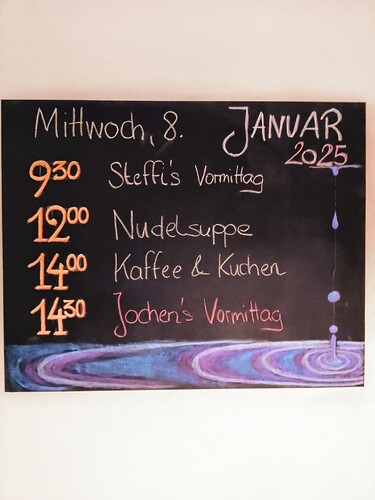 Mittwoch, 8. JANUAR
2025
9³⁰ Steffi's Vormittag
12⁰⁰ Nudelsuppe
14⁰⁰ Kaffee & Kuchen
14³⁰ Jochen's Vormittag